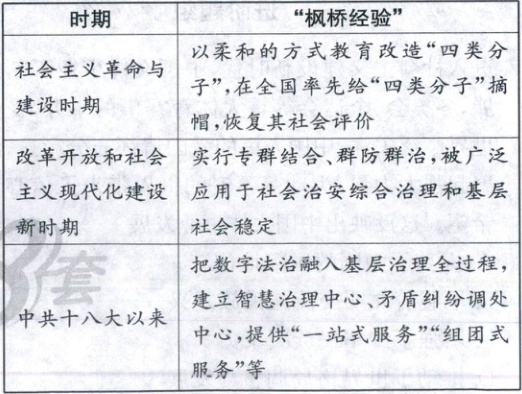 时期 “枫桥经验”
社会主义革命与
建设时期
以柔和的方式教育改造“四类分
子”,在全国率先给“四类分子”摘
帽,恢复其社会评价
改革开放和社会
主义现代化建设
新时期
实行专群结合、群防群治,被广泛
应用于社会治安综合治理和基层
社会稳定
中共十八大以来
把数字法治融入基层治理全过程,
建立智慧治理中心、矛盾纠纷调处
中心,提供“一站式服务”“组团式
服务”等
套